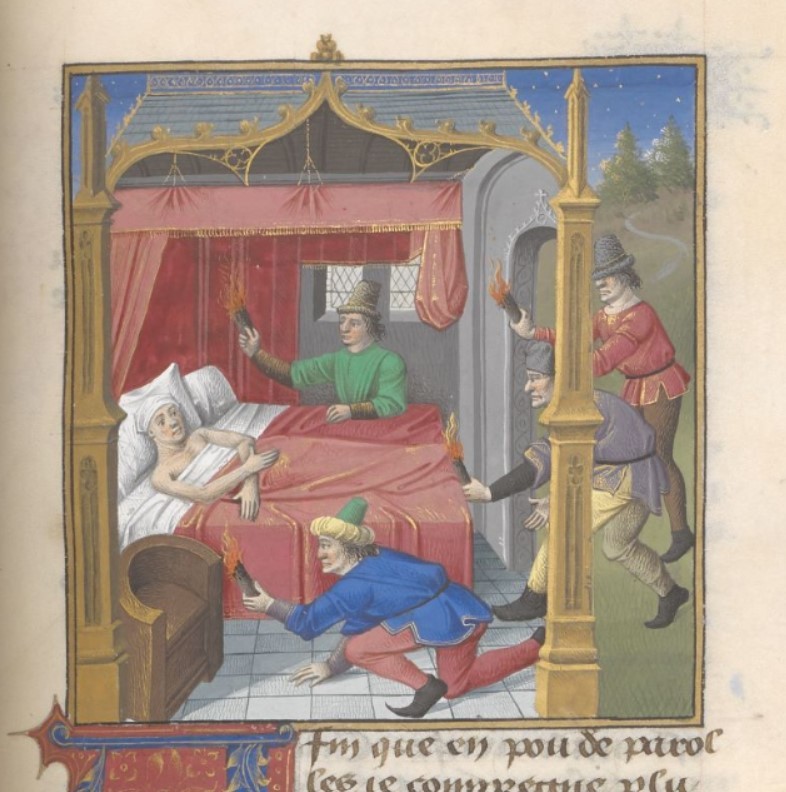 fin que en pou de parol
les ie compreigne plu